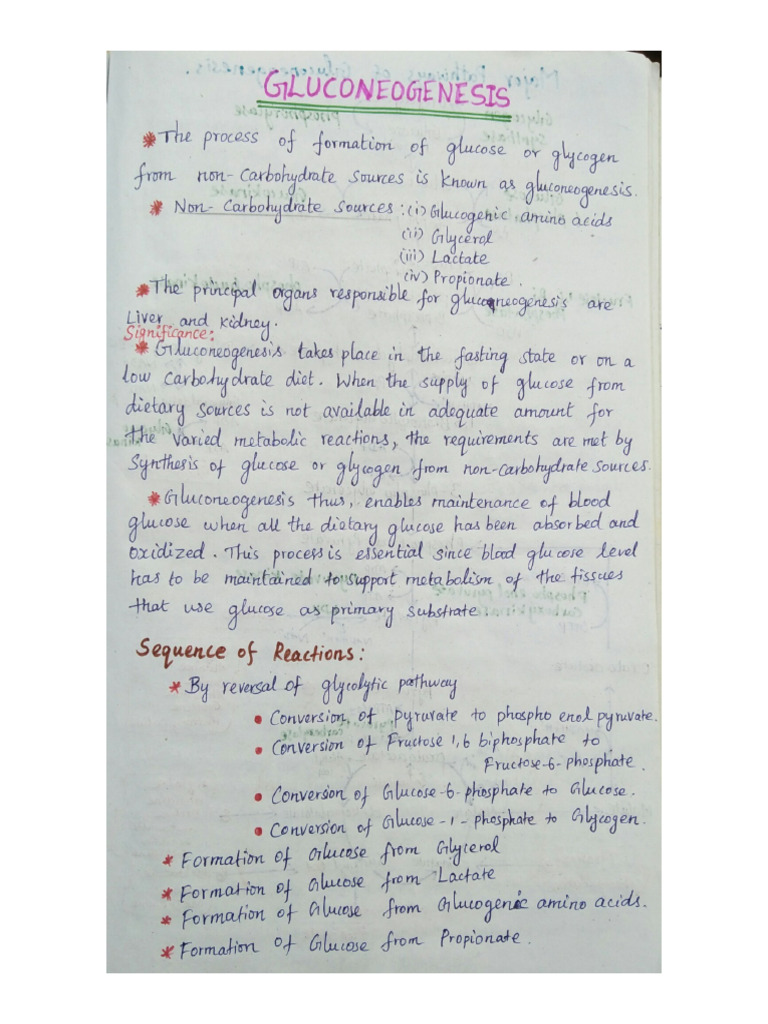 GLUCONEOGENESIS
* The process of formation of glucose or glycogen
from non-carbohydrate sources is known as gluconeogenesis.
* Non-Carbohydrate Sources : (i) Glucogenic amino acids
(ii) Glycerol
(iii) Lactate
(iv) Propionate.
* The principal organs responsible for gluconeogenesis are
Liver and kidney.
Significance:
* Gluconeogenesis takes place in the fasting state or on a
low carbohydrate diet. When the supply of glucose from
dietary sources is not available in adequate amount for
the varied metabolic reactions, the requirements are met by
Synthesis of glucose or glycogen from non-carbohydrate sources.
* Gluconeogenesis thus, enables maintenance of blood
glucose when all the dietary glucose has been absorbed and
oxidized. This process is essential since blood glucose level
has to be maintained to support metabolism of the tissues
that use glucose as primary substrate
Sequence of Reactions:
* By reversal of glycolytic pathway
• Conversion of pyruvate to phospho enol pyruvate.
• Conversion of Fructose 1,6 biphosphate to
Fructose-6-phosphate.
• Conversion of Glucose-6-phosphate to Glucose.
• Conversion of Glucose-1-phosphate to Glycogen.
* Formation of Glucose from Glycerol
* Formation of Glucose from Lactate
* Formation of Glucose from Glucogenic amino acids.
* Formation of Glucose from Propionate.